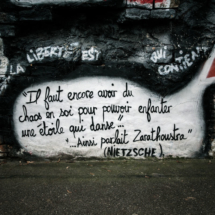 LA LIBERTÉ EST
QUI
"Il faut encore avoir du
chaos en soi pour pouvoir enfanter
une étoile qui danse"..
"...Ainsi parlait Zarathoustra"
(NIETZSCHE)